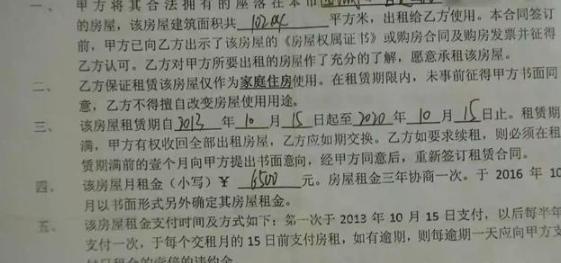 一、 甲方将其合法拥有的座落在本市
的房屋，该房屋建筑面积共 102.04 平方米，出租给乙方使用。本合同签订
前，甲方已向乙方出示了该房屋的《房屋权属证书》或购房合同及购房发票并征得
乙方认可。乙方对甲方所要出租的房屋作了充分的了解，愿意承租该房屋。
二、 乙方保证租赁该房屋仅作为家庭住房使用。在租赁期限内，未事前征得甲方书面同
意，乙方不得擅自改变房屋使用用途。
三、 该房屋租赁期自 2013 年 10 月 15 日起至 2020 年 10 月 15 日止。租赁期
满，甲方有权收回全部出租房屋，乙方应如期交换。乙方如要求续租，则必须在租
赁期满前的壹个月向甲方提出书面意向，经甲方同意后，重新签订租赁合同。
四、 该房屋月租金（小写）￥ 6500 元。房屋租金三年协商一次。于 2016 年 10
月以书面形式另外确定其房屋租金。
五、 该房屋租金支付时间及方式如下：第一次于 2013 年 10 月 15 日支付，以后每半年
支付一次，于每个交租月的 15 日前支付房租，如有逾期，则每逾期一天应向甲方支